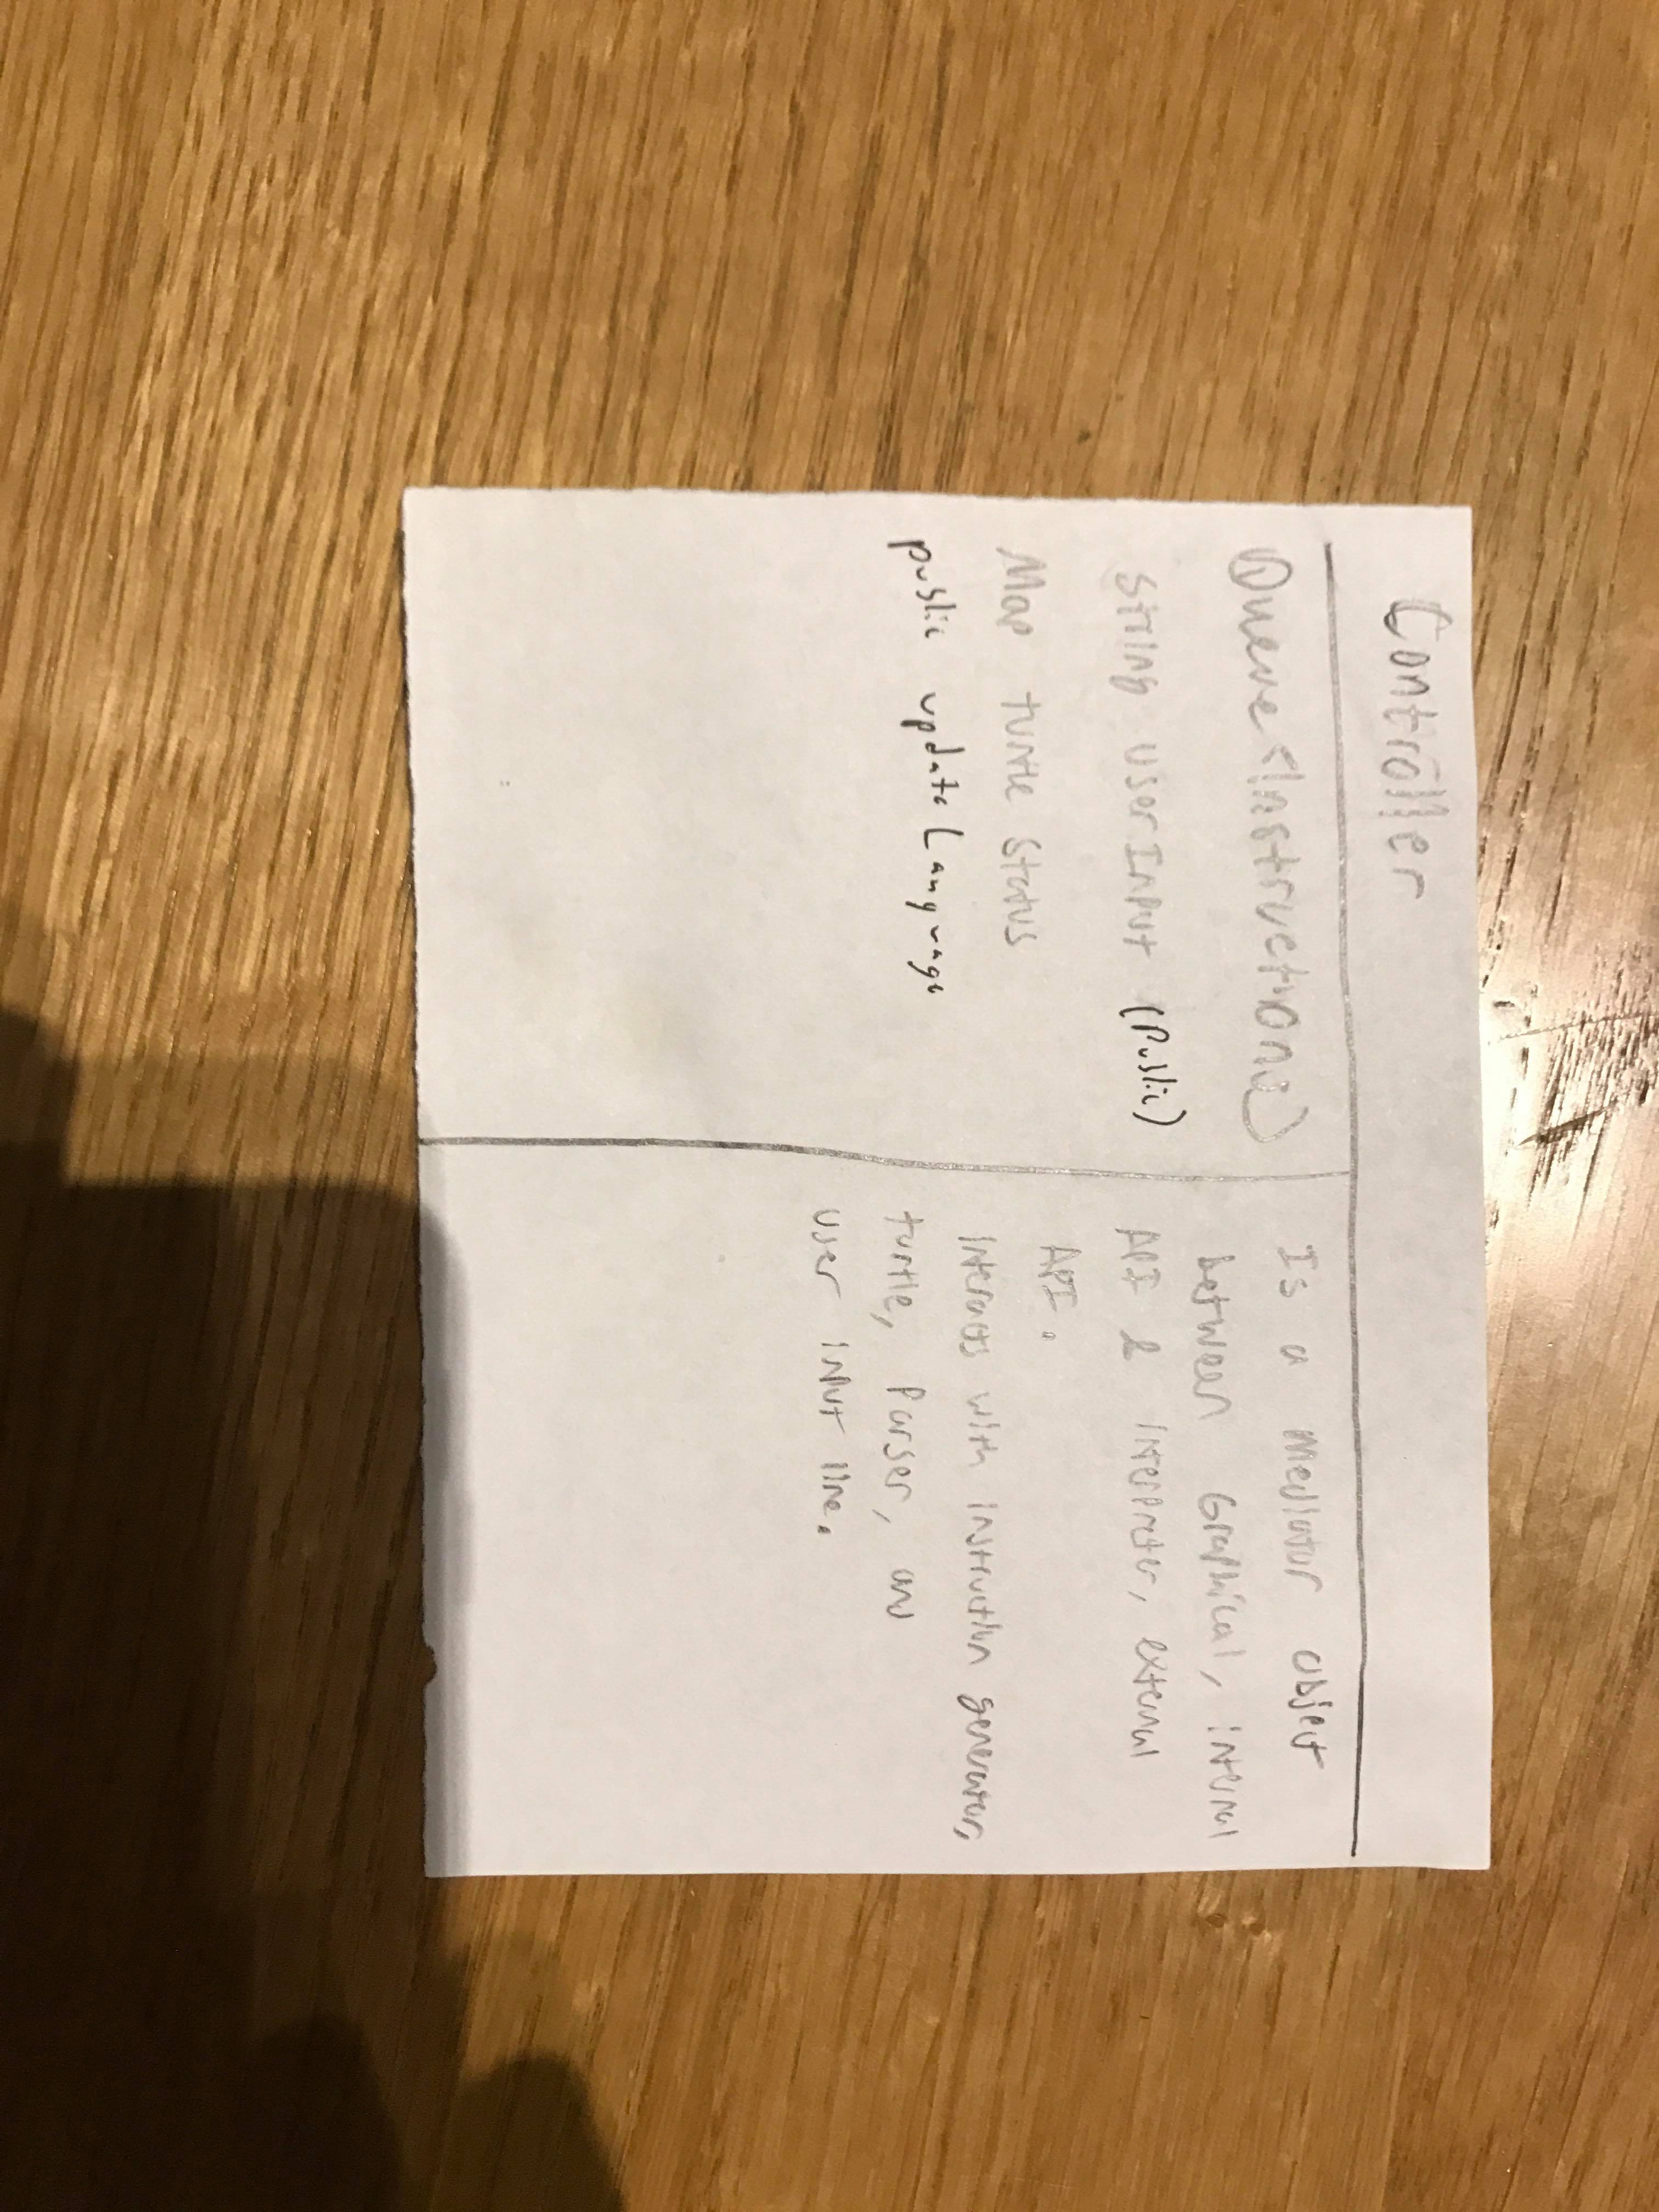 Controller
Queue<Instructions>
String userInput (Public)
Map turtle status
public updateLanguage
Is a mediator object
between Graphical, internal
API & interpreter, external
API.
Interacts with instruction generator,
turtle, parser, and
user input line.